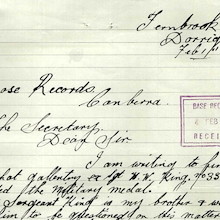 Fernbrook
Dorrig
Feb 1st
Base Records
Canberra.
The Secretary
Dear Sir
BASE REC
FEB
RECEI
I am writing to fin
what gallentry Sgt W. W. King, 7033
ed the Military medal.
Sergeant King is my brother &
him to be questioned on this ma